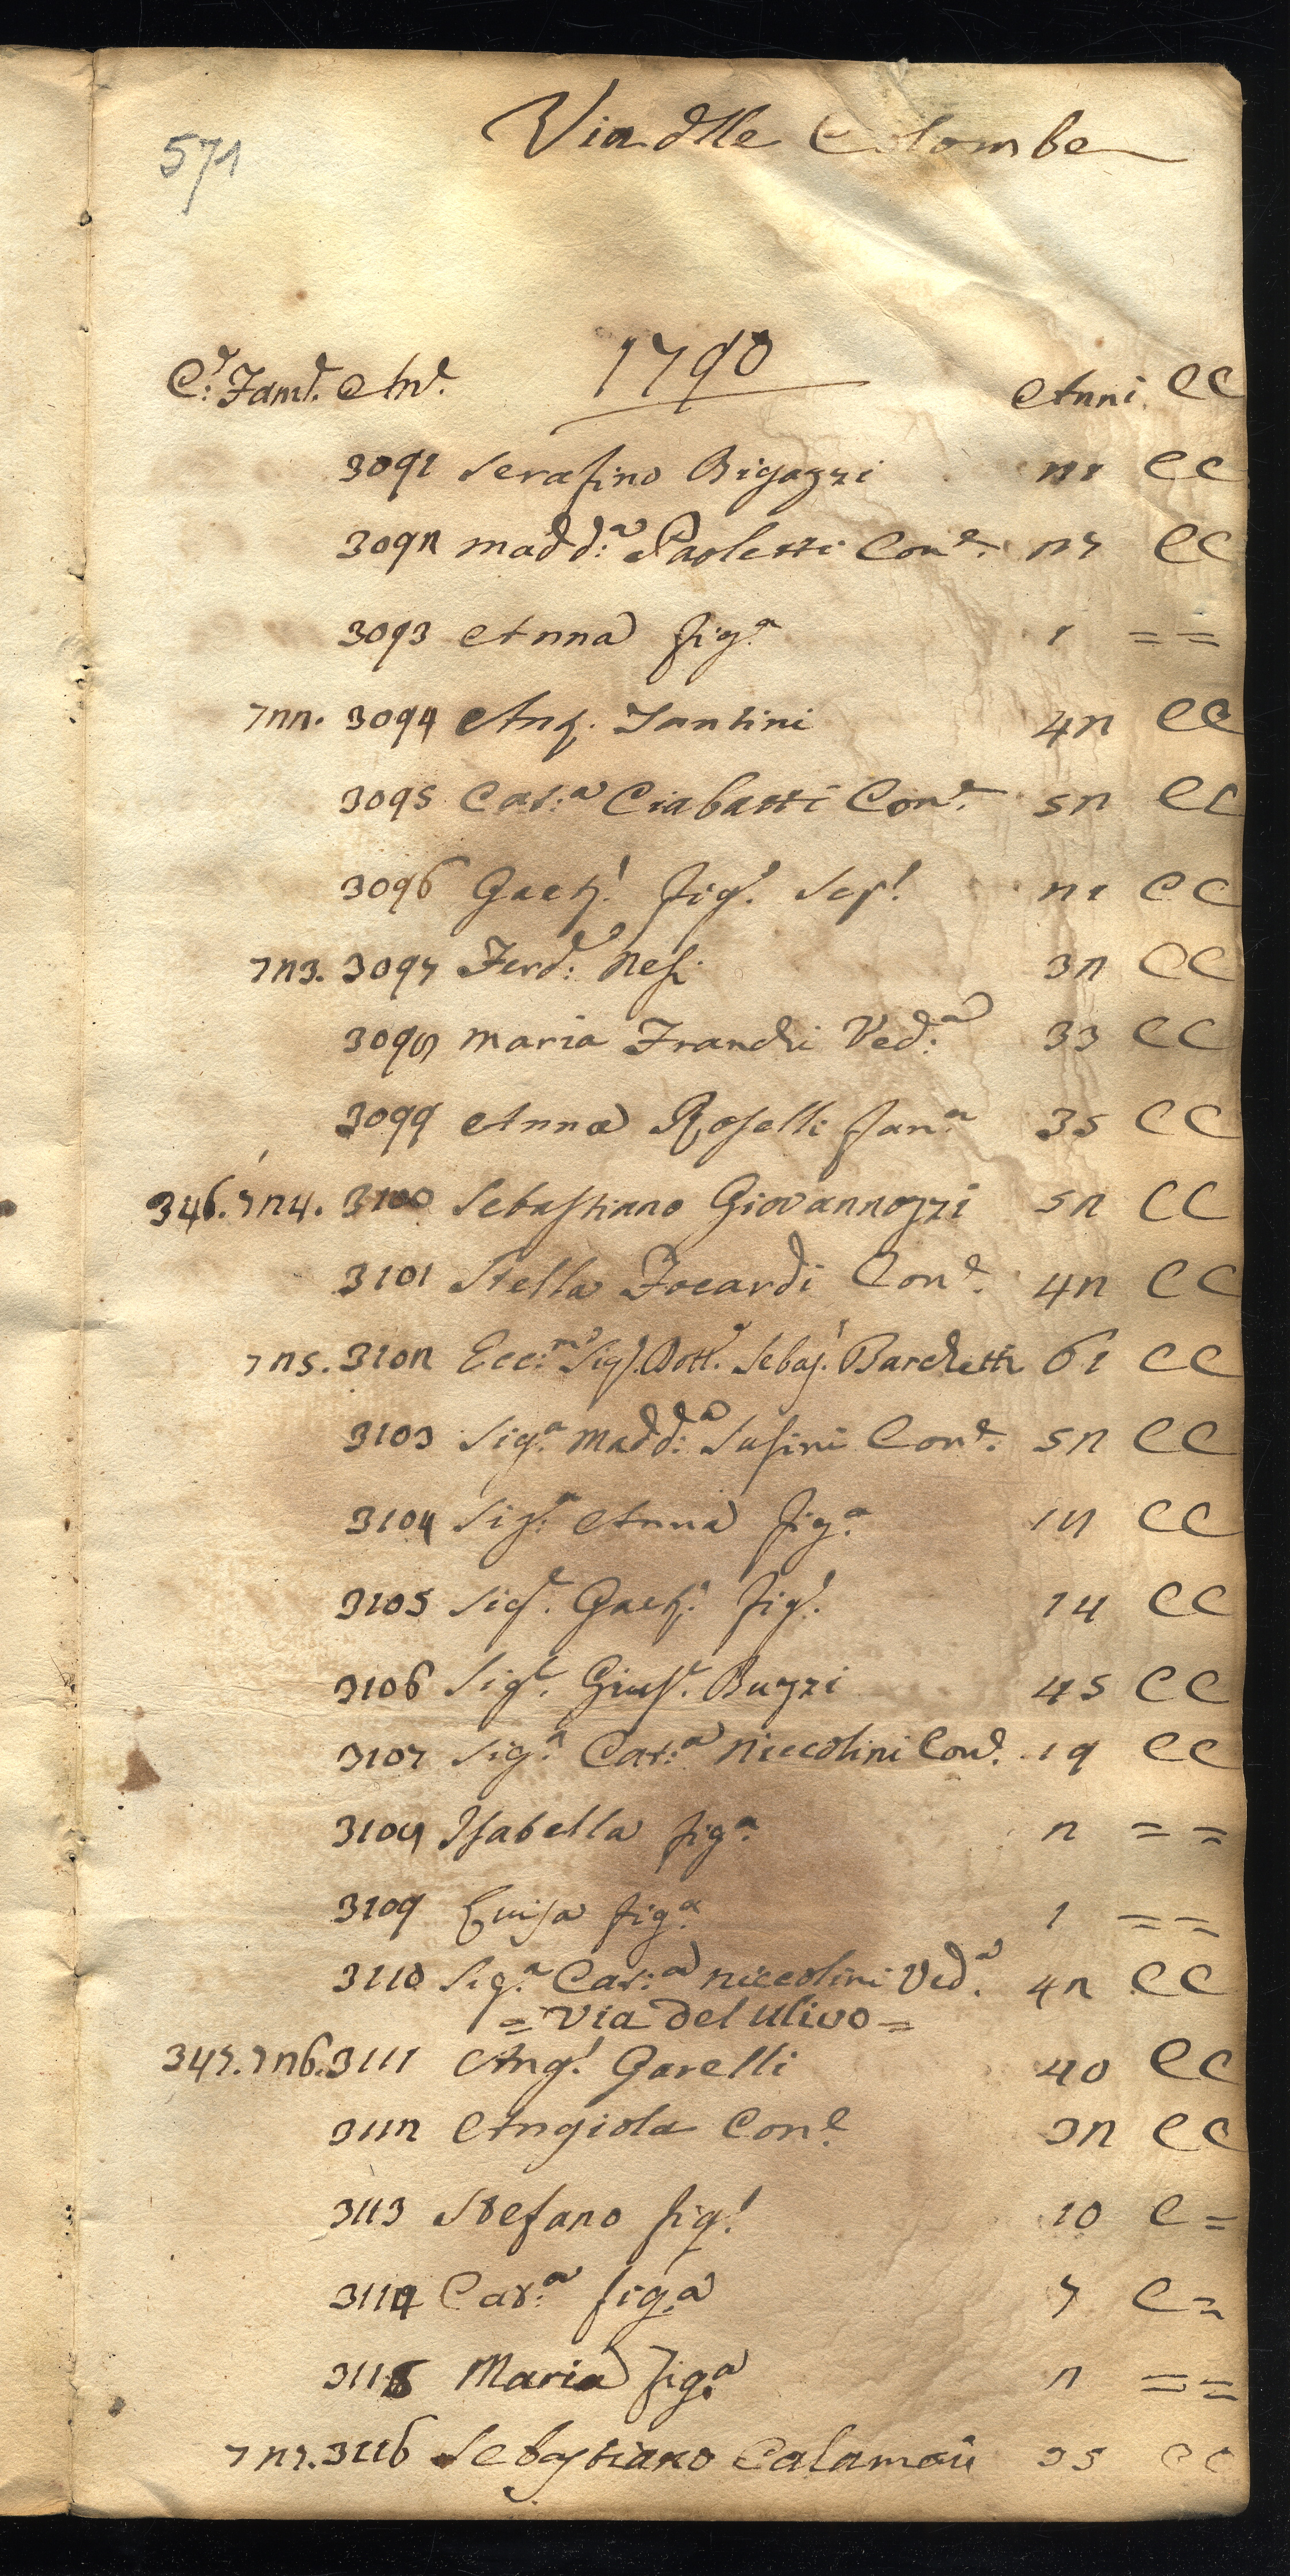 571
Via dlle Colombe
1790
C.e Fam.e An.e Anni CC
3091 Serafino Bigazzi 21 CC
3092 Madd:a Paoletti Con.e 27 CC
3093 Anna fig.a 1 = =
722. 3094 Ang. Santini 42 CC
3095 Cat:a Ciabatti Con.e 52 CC
3096 Gaet.o fig.o 21 CC
723. 3097 Ferd:o Nesi 32 CC
3098 Maria Franchi Ved:a 33 CC
3099 Anna Roselli 35 CC
346. 724. 3100 Sebastiano Giovannozzi 52 CC
3101 Stella Focardi Con.e 42 CC
725. 3102 Ecc:mo Sig.r Dott.e Sebas.o Barchetti 61 CC
3103 Sig.a Madd:a Susini Con.e 52 CC
3104 Sig.a Anna fig.a 18 CC
3105 Sig.e Gaet.o fig.o 14 CC
3106 Sig.e Gius.e Buzzi 45 CC
3107 Sig.a Cat:a Niccolini Con.e 19 CC
3108 Isabella fig.a 2 = =
3109 Luisa fig.a 1 = =
3110 Sig.a Cat:a Niccolini Ved.a 42 CC
= Via del Ulivo =
347. 726. 3111 Ang.o Garelli 40 CC
3112 Angiola Con.e 32 CC
3113 Stefano fig.o 10 C =
3114 Cat:a fig.a 7 C =
3115 Maria fig.a 2 = =
727. 3116 Sebastiano Calamai 35 CC